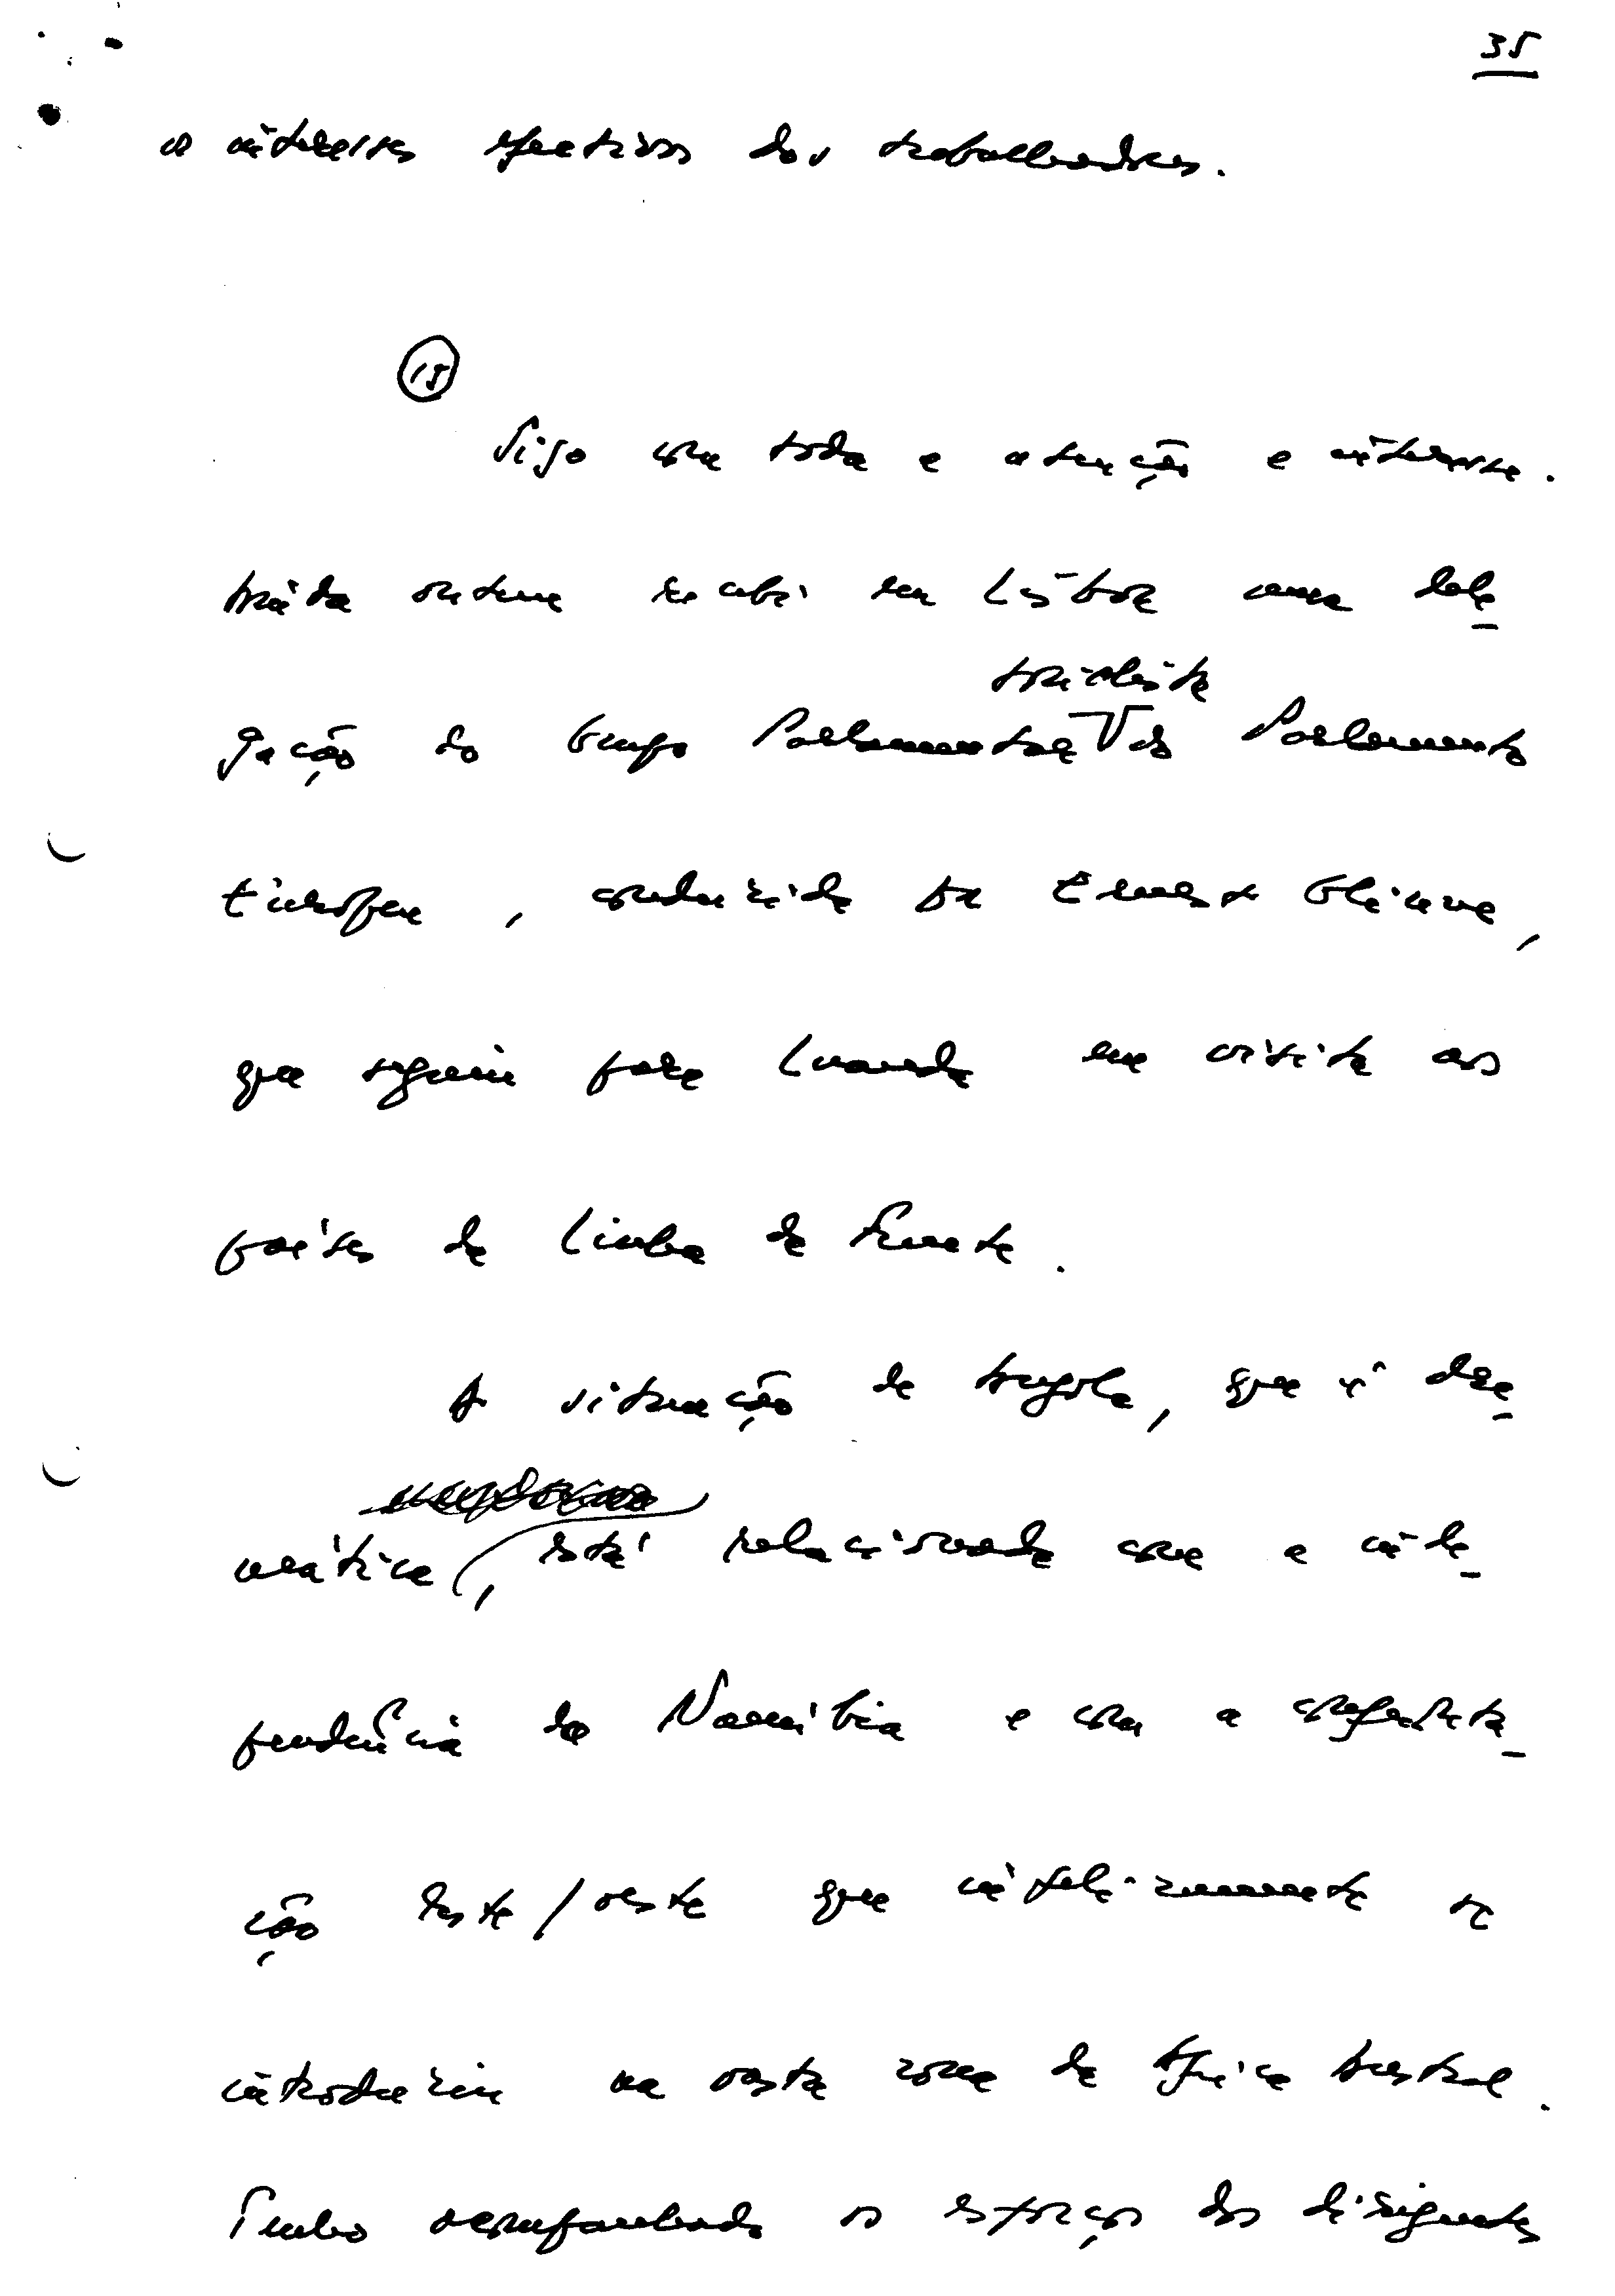 35
os interesses efectivos dos trabalhadores.
15
Sigo com toda a atenção e interesse.
Ainda ontem recebi em Lisboa uma dele_
socialista
gação do Grupo Parlamentar do Parlamento
Europeu, conduzida por Ernest Glinne,
que seguiu para Luanda em visita aos
países da Linha da Frente.
A situação de Angola, que é dra_
mática, está relacionada com a inde_
pendência da Namíbia e com a confronta_
ção leste/oeste que infelizmente se
introduziu na vasta zona da África Austral.
Tenho acompanhado os esforços dos dirigentes